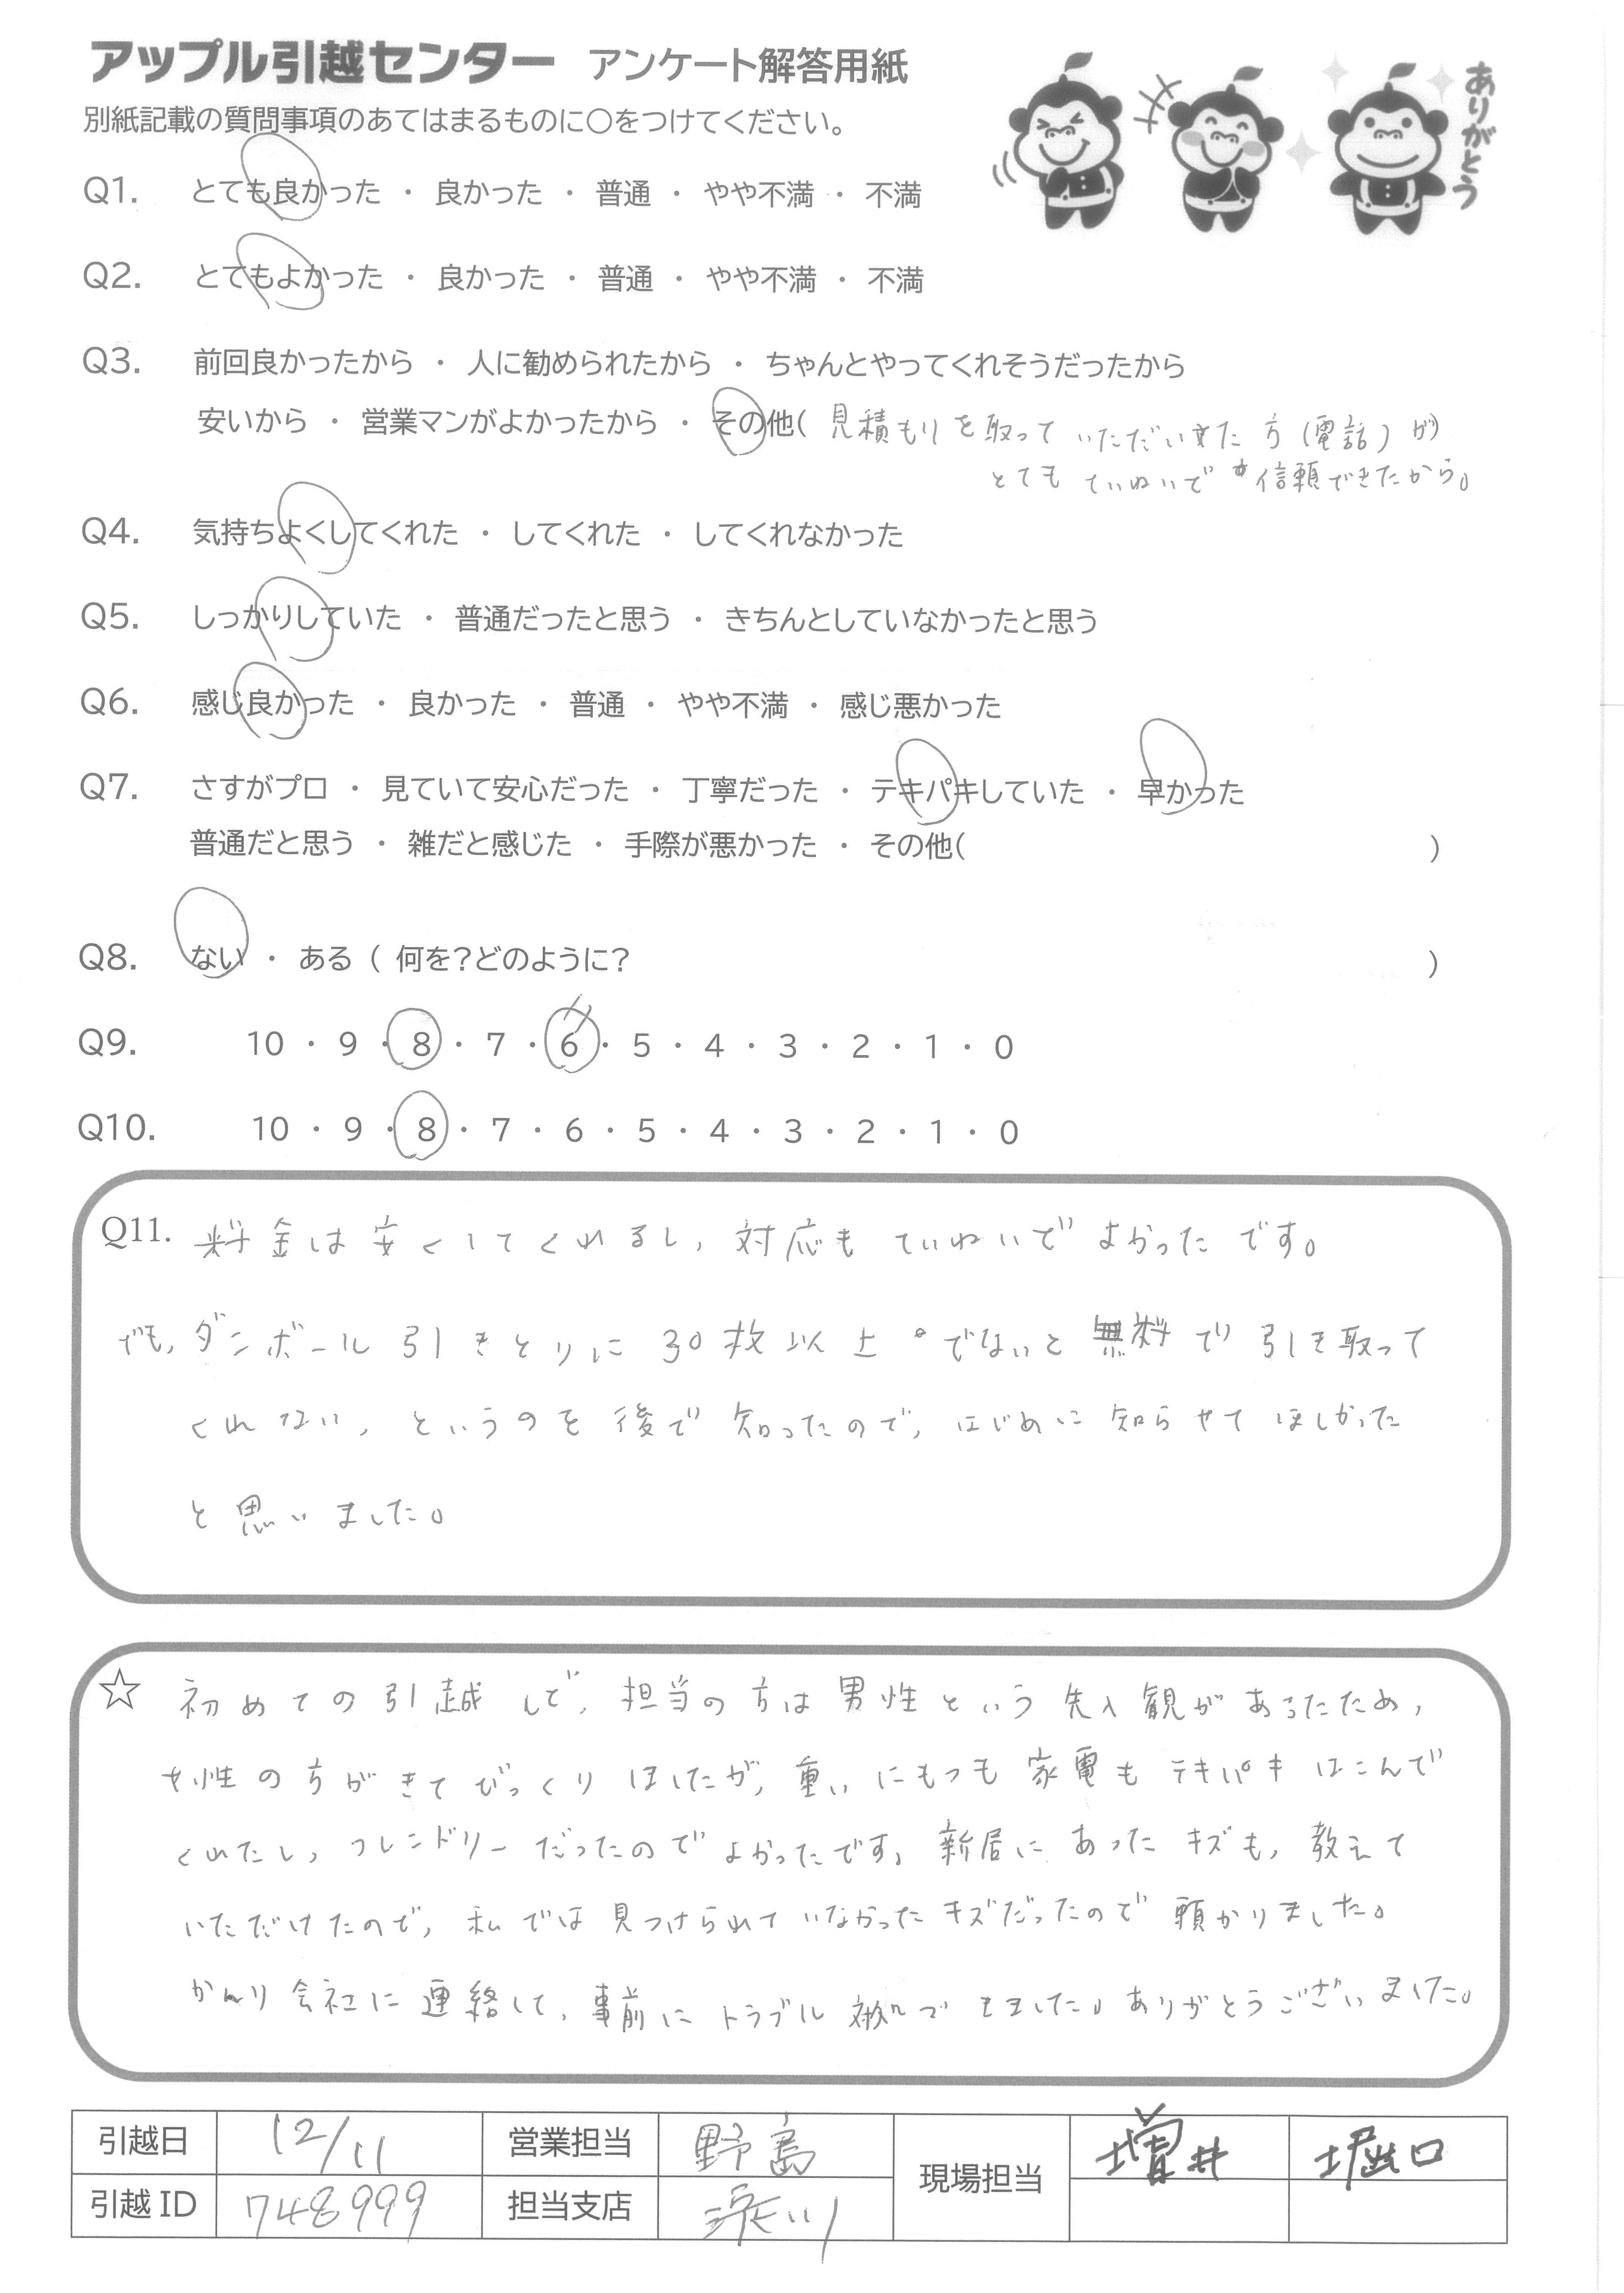 アップル引越センター アンケート解答用紙
ありがとう
別紙記載の質問事項のあてはまるものに○をつけてください。
Q1. とても良かった ・ 良かった ・ 普通 ・ やや不満 ・ 不満
Q2. とてもよかった ・ 良かった ・ 普通 ・ やや不満 ・ 不満
Q3. 前回良かったから ・ 人に勧められたから ・ ちゃんとやってくれそうだったから
安いから ・ 営業マンがよかったから ・ その他( 見積もりを取っていただいた方(電話)が)
とてもていねいで信頼できたから。
Q4. 気持ちよくしてくれた ・ してくれた ・ してくれなかった
Q5. しっかりしていた ・ 普通だったと思う ・ きちんとしていなかったと思う
Q6. 感じ良かった ・ 良かった ・ 普通 ・ やや不満 ・ 感じ悪かった
Q7. さすがプロ ・ 見ていて安心だった ・ 丁寧だった ・ テキパキしていた ・ 早かった
普通だと思う ・ 雑だと感じた ・ 手際が悪かった ・ その他( )
Q8. ない ・ ある ( 何を?どのように? )
Q9. 10 ・ 9 ・ 8 ・ 7 ・ 6 ・ 5 ・ 4 ・ 3 ・ 2 ・ 1 ・ 0
Q10. 10 ・ 9 ・ 8 ・ 7 ・ 6 ・ 5 ・ 4 ・ 3 ・ 2 ・ 1 ・ 0
Q11. 料金は安くしてくれるし、対応もていねいでよかったです。
でも、ダンボール引きとりに30枚以上でないと無料で引き取って
くれない、というのを後で知ったので、はじめに知らせてほしかった
と思いました。
☆ 初めての引越しで、担当の方は男性という先入観があったため、
女性の方がきてびっくりしましたが、重いにもつも家電もテキパキはこんで
くれたし、フレンドリーだったのでよかったです。新居にあったキズも、教えて
いただけたので、私では見つけられていなかったキズだったので頼かりました。
かんり会社に連絡して、事前にトラブル できました。ありがとうございました。
引越日 12/11 営業担当 野島 現場担当 増井 堀口
引越ID 748999 担当支店 淀川